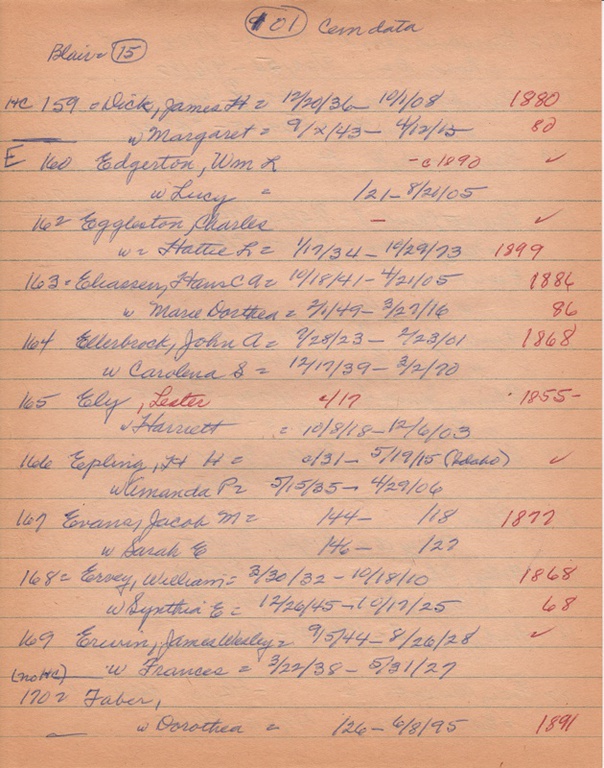 901 Cem data
Blair = 15
HC 159 = Dick, James H = 12/20/36 - 10/1/08 1880
w Margaret = 9/x/43 - 4/12/15 80
E 160 Edgerton, Wm L - c1890 ✓
w Lucy = /21 - 8/20/05
162 Eggleston, Charles - ✓
w = Hattie L = 1/17/34 - 10/29/73 1899
163 = Eliassen, Hans C A = 10/18/41 - 4/21/05 1886
w Marie Dorthea = 2/1/49 - 3/27/16 86
164 Ellerbrock, John A = 7/28/23 - 2/23/01 1868
w Carolena S = 12/17/39 - 3/2/70
165 Ely, Lester c/17 1855 -
w Harriett = 10/8/18 - 12/6/03
166 Epling, H H = c/31 - 5/19/15 (Idaho) ✓
w Amanda P = 5/15/35 - 4/29/06
167 Evans, Jacob M = /44 - /18 1877
w Sarah E /46 - /27
168 = Ervey, William = 3/30/32 - 10/18/10 1868
w Synthia E = 12/26/45 - 10/17/25 68
169 Erwin, James Wesley = 9/5/44 - 8/26/28 ✓
(no HC) w Frances = 3/22/38 - 5/31/27
170 = Faber,
w Dorothea = /26 - 6/8/95 1891